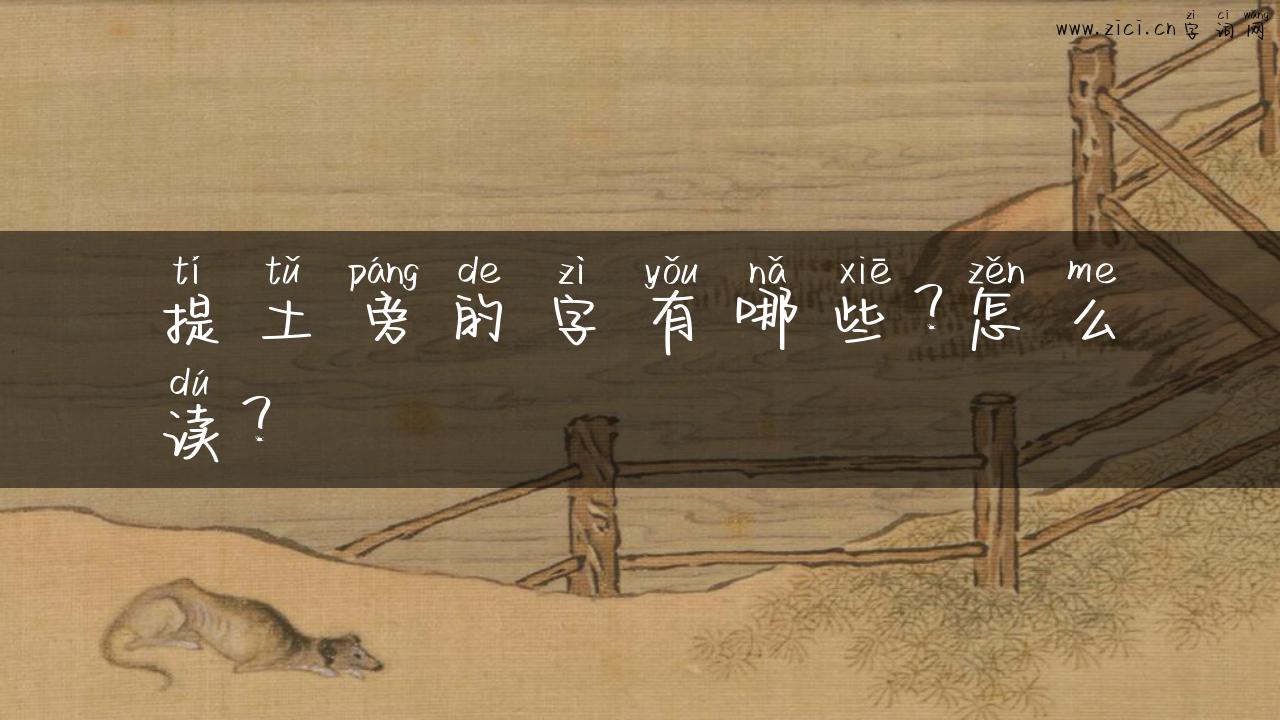 zì cí wǎng
www.zici.cn字词网
tí tǔ páng de zì yǒu nǎ xiē zěn me
提土旁的字有哪些？怎么
dú
读？